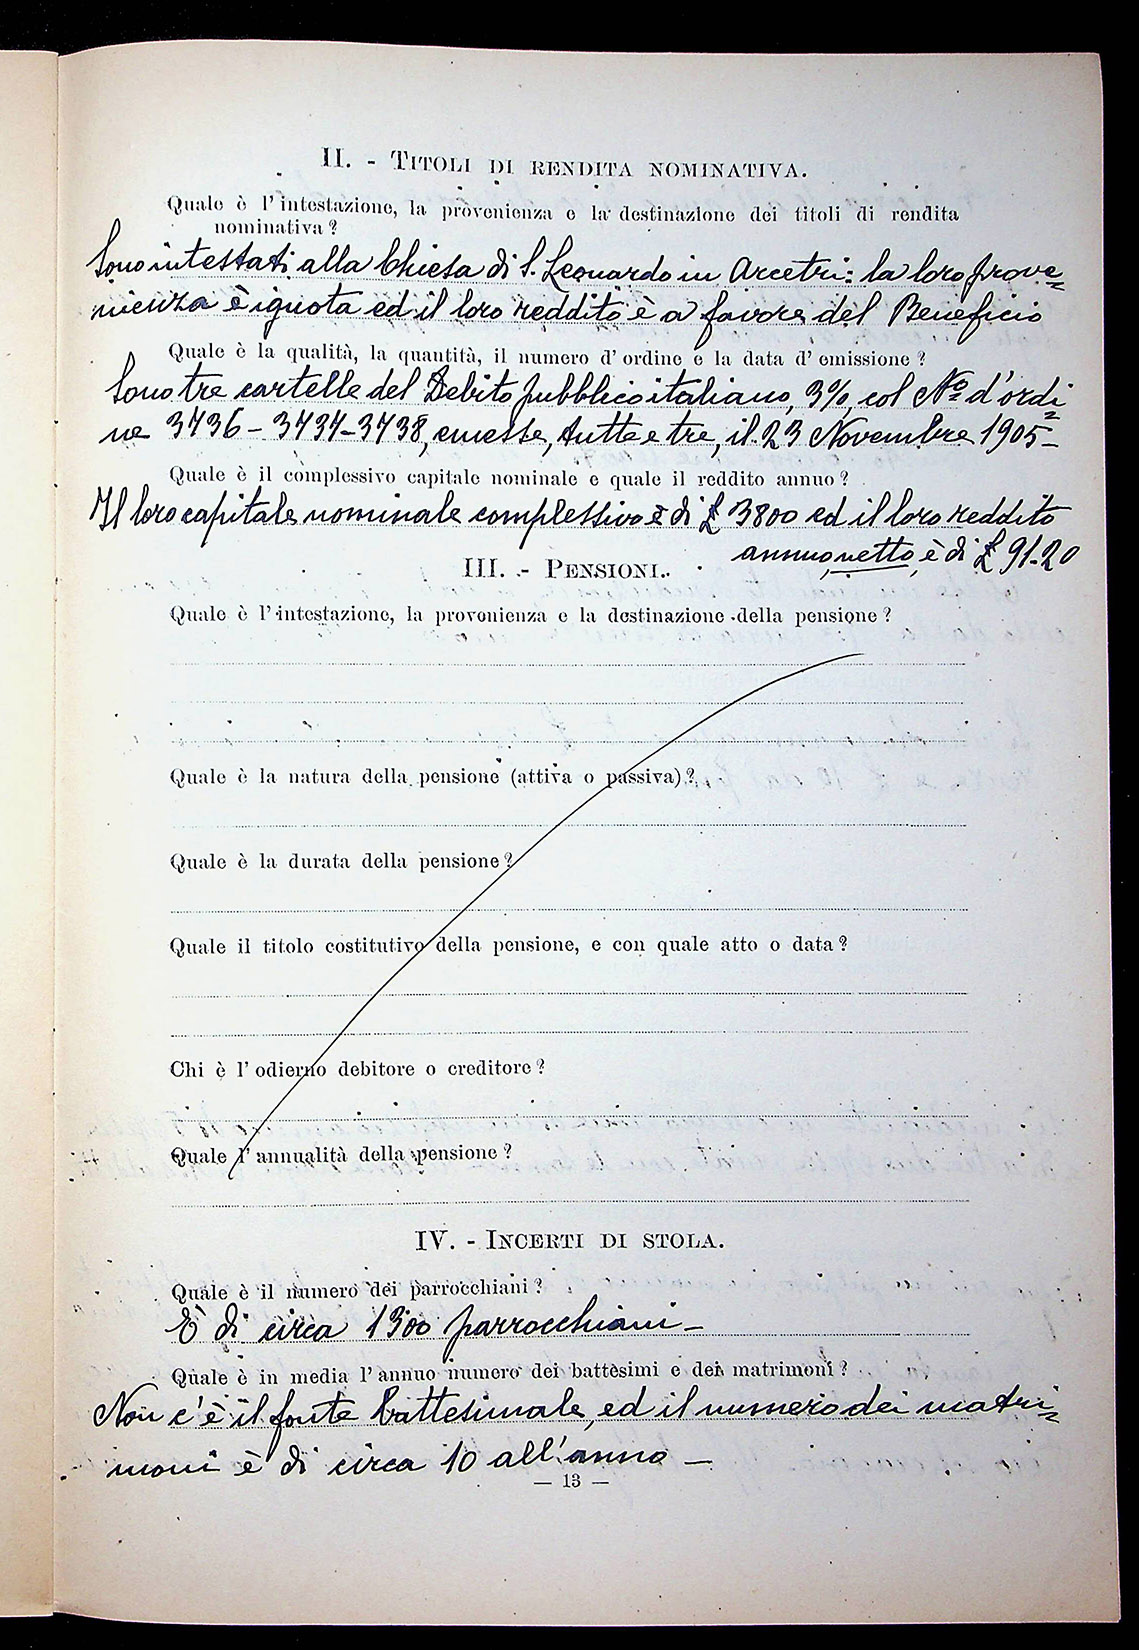 II. - Titoli di rendita nominativa.
Quale è l'intestazione, la provenienza e la destinazione dei titoli di rendita
nominativa?
Sono intestati alla Chiesa di S. Leonardo in Arcetri: la loro prove=
nienza è ignota ed il loro reddito è a favore del Beneficio
Quale è la qualità, la quantità, il numero d'ordine e la data d'emissione?
Sono tre cartelle del Debito pubblico italiano, 3%, col Nº d'ordi=
ne 3736 - 3737 - 3738, emesse, tutte e tre, il 23 Novembre 1905 -
Quale è il complessivo capitale nominale e quale il reddito annuo?
Il loro capitale nominale complessivo è di £ 3800 ed il loro reddito
annuo, netto, è di £ 91.20
III. - Pensioni.
Quale è l'intestazione, la provenienza e la destinazione della pensione?
Quale è la natura della pensione (attiva o passiva)?
Quale è la durata della pensione?
Quale il titolo costitutivo della pensione, e con quale atto o data?
Chi è l'odierno debitore o creditore?
Quale l'annualità della pensione?
IV. - Incerti di stola.
Quale è il numero dei parrocchiani?
È di circa 1300 parrocchiani -
Quale è in media l'annuo numero dei battesimi e dei matrimoni?
Non c'è il fonte battesimale, ed il numero dei matri=
moni è di circa 10 all'anno -
— 13 —